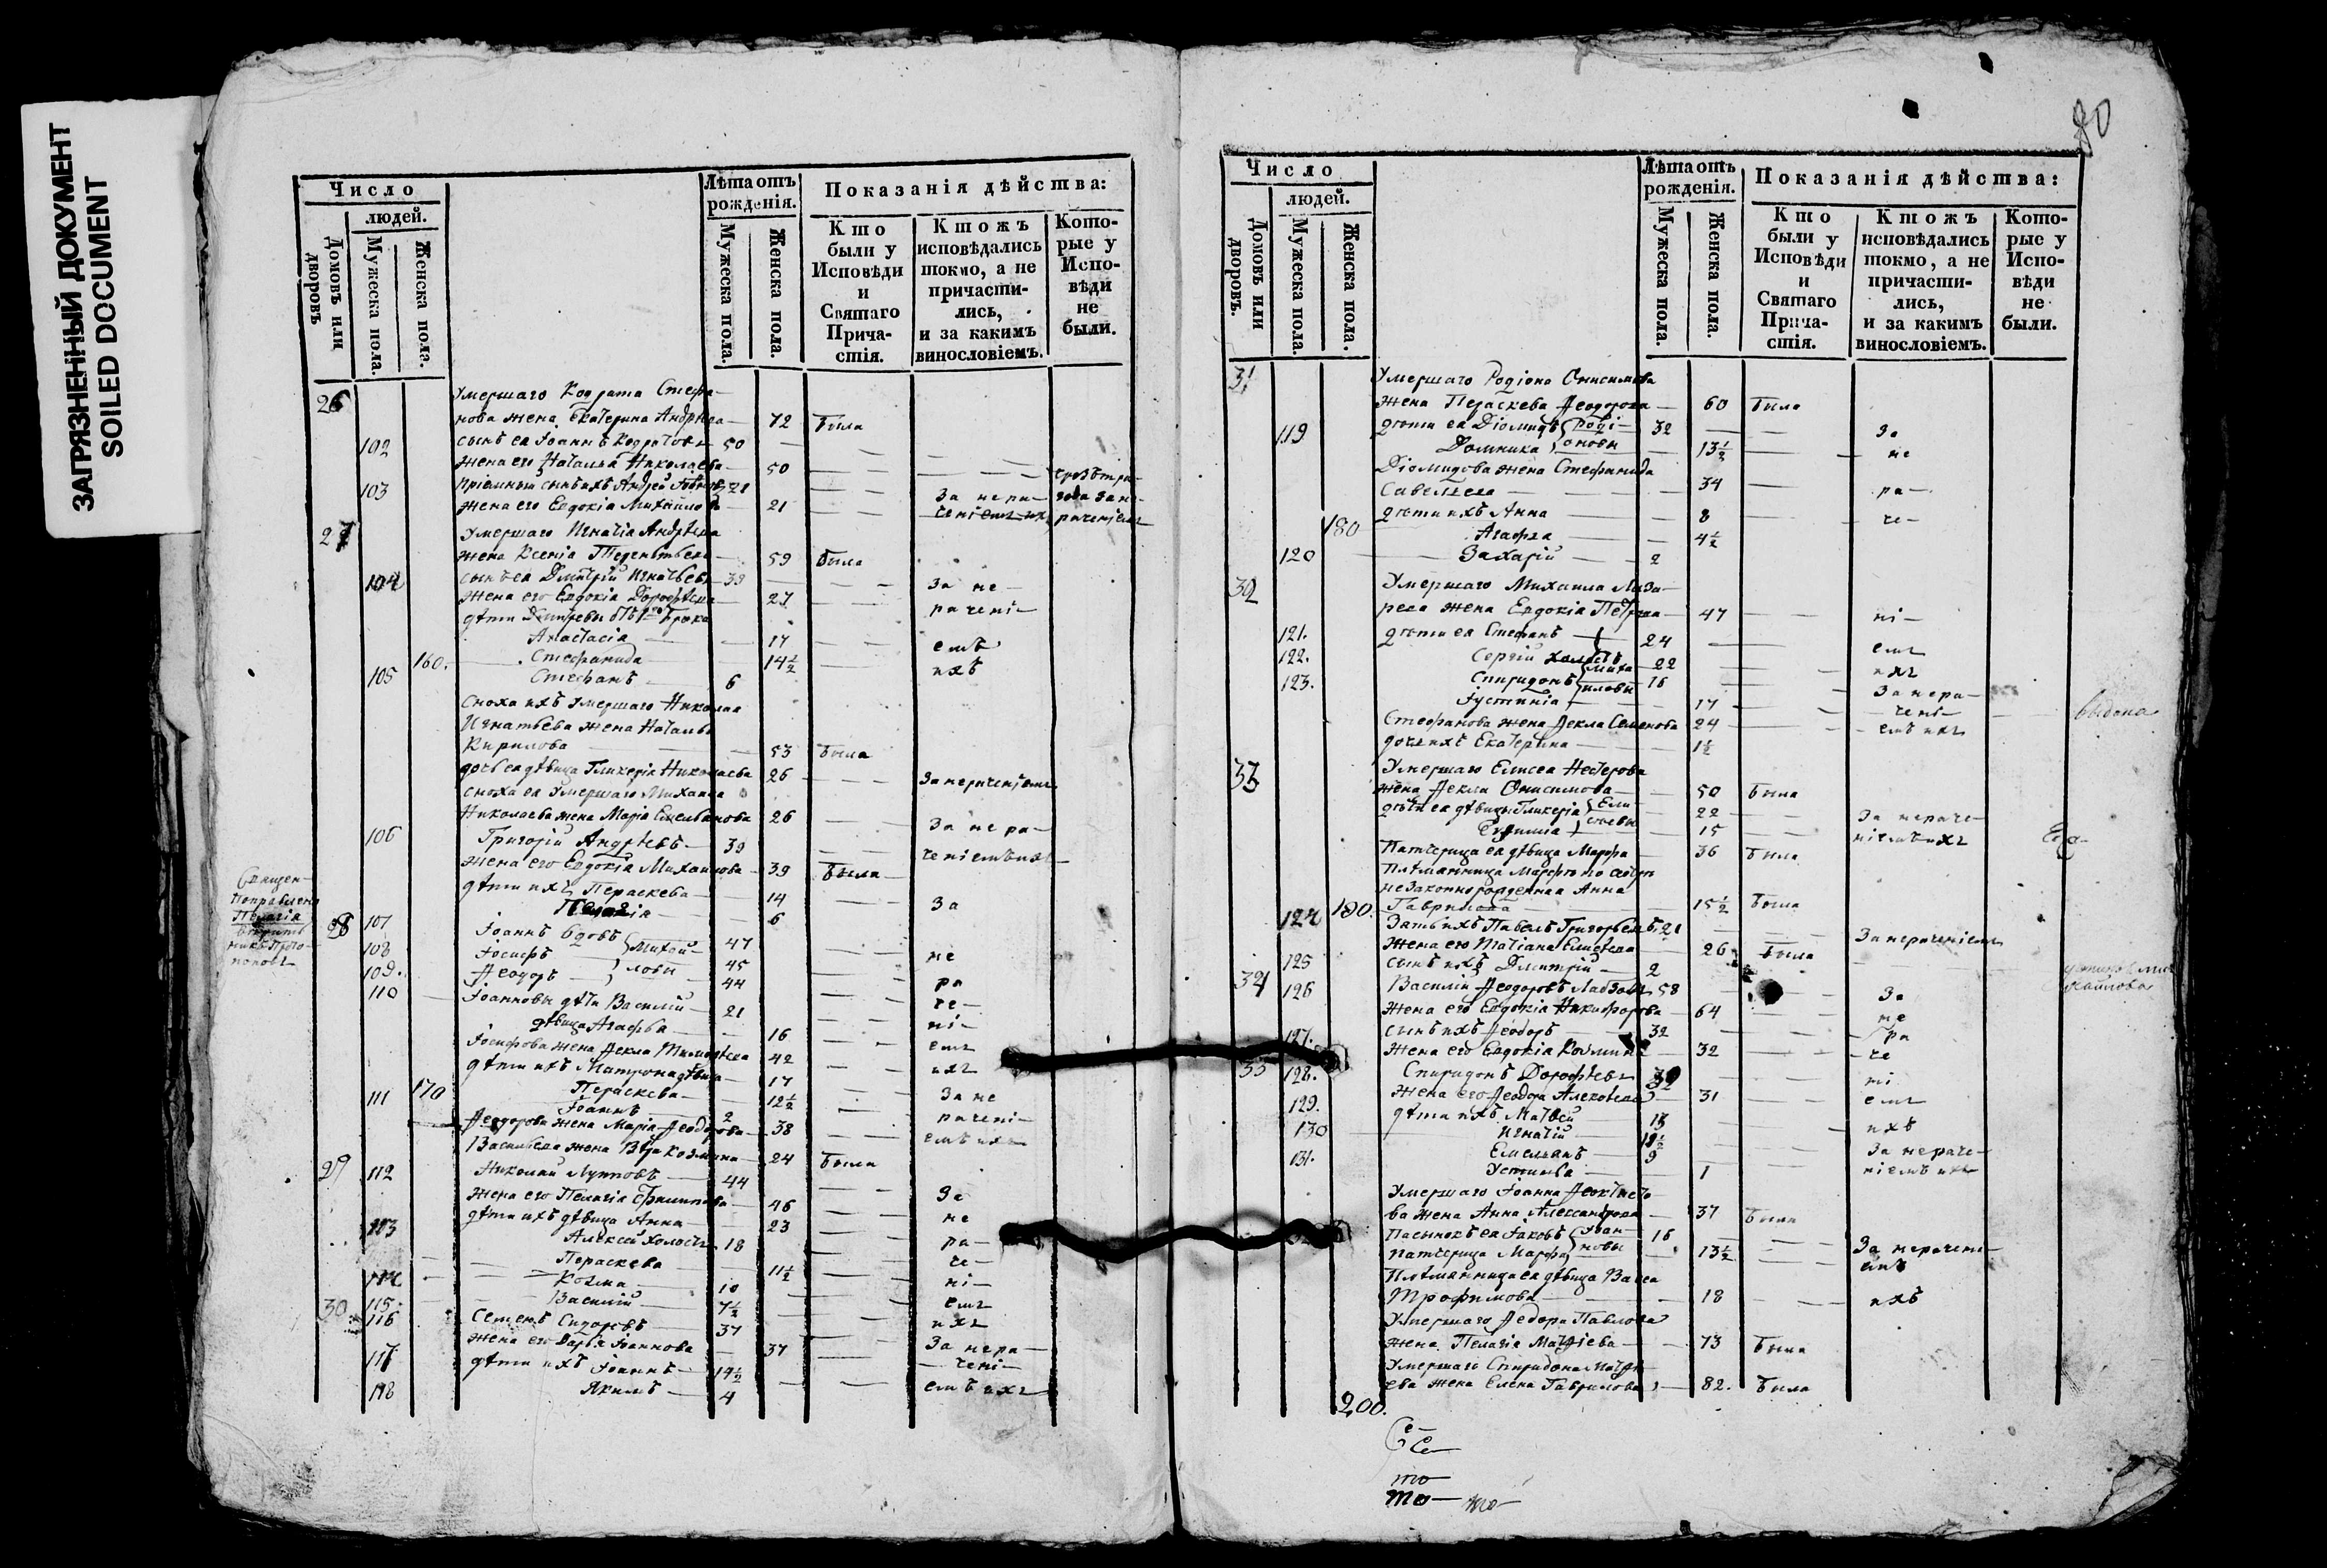 ЗАГРЯЗНЕННЫЙ ДОКУМЕНТ
SOILED DOCUMENT
Число
людей.
Домовъ или дворовъ
Мужеска пола.
Женска пола.
Лѣта отъ рожденія.
Мужеска пола.
Женска пола.
Показанія дѣйства:
Кто были у Исповѣди и Святаго Причастія.
Ктожъ исповѣдались токмо, а не причастились, и за какимъ винословіемъ.
Которые у Исповѣди не были.
26 Умершаго Кодрата Стефа-
нова жена Екатерина Андрѣева 72 была
102 сынъ ея Іоаннъ Кодратовъ 50
жена его Наталья Николаева 50
103 пріемный сынъ ихъ Андрей 21 За нера-
жена его Евдокія Михайлова 21 ченіемъ ихъ раченіемъ
27 Умершаго Игнатія Андрѣева
жена Ксенія 59 была
104 сынъ ея Дмитрій Игнатьевъ 39 За не-
жена его Евдокія Дорофѣева 27 рачені-
дѣти Дмитревы отъ 1го брака
Анастасія 17 емъ
160. Стефанида 14½ ихъ
105 Стефанъ 6
Сноха ихъ умершаго Николая
Игнатьева жена Наталья
Кирилова 53 была
дочь ея дѣвица Гликерія Николаева 26 За нераченіемъ
сноха ея умершаго Михаила
Николаева жена Марія Емельянова 26 За нера-
106 Григорій Андрѣевъ 39 ченіемъ ихъ
жена его Евдокія Михаилова 39 была
дѣти ихъ Пераскева 14 За
Пелагія 6
28 107 Іоаннъ вдовъ Михай- 47
108 Іосифъ ловы 45 не
109. Ѳеодоръ 44 ра
110 Іоанновы дѣти Василій 21 че-
дѣвица Агафья 16 ні-
Іосифова жена Ѳекла Тимофѣева 42 емъ
дѣти ихъ Матрона дѣвица 17 ихъ
170 Пераскева 12½ За не
111 Іоаннъ 2 рачені-
Ѳеодорова жена Марія Ѳеодорова 38 емъ ихъ
Васильева жена Вѣра Козмина 24 была
29 112 Николай Лупповъ 44
жена его Пелагія Филиппова 46 За
дѣти ихъ дѣвица Анна 23 не
113 Алексей холостъ 18 ра-
Пераскева 11½ че-
114 Козма 10 ні-
115. Василій 7½ емъ
30 116 Семенъ Сидоровъ 37 ихъ
жена его Дарья Іоаннова 37 За нера-
117 дѣти ихъ Іоаннъ 14½ чені-
118 Якимъ 4 емъ ихъ
80
Число
людей.
Домовъ или дворовъ.
Мужеска пола.
Женска пола.
Лѣта отъ рожденія.
Мужеска пола.
Женска пола.
Показанія дѣйства:
Кто были у Исповѣди и Святаго Причастія.
Ктожъ исповѣдались токмо, а не причастились, и за какимъ винословіемъ.
Которые у Исповѣди не были.
31 Умершаго Родіона Онисимова
жена Пераскева Ѳеодорова 60 была
119 дѣти ея Діомидъ Роді- 32 За
Домника оновы 13½ не
Діомидова жена Стефанида
Савельева 34 ра-
дѣти ихъ Анна 8 че-
180 Агафья 4½
120 Захарій 2
32 Умершаго Михаила Лаза-
рева жена Евдокія Петрова 47 ні-
121. дѣти ея Стефанъ 24 емъ
122. Сергій холостъ Миха- 22 ихъ
123. Спиридонъ иловы 16 За нера-
Іустинія 17 чені- выдана
Стефанова жена Ѳекла Семенова 24 емъ ихъ
дочь ихъ Екатерина 1½
33 Умершаго Елисея Нестерова
жена Ѳекла Онисимова 50 была
дѣти ея дѣвицы Гликерія Ели- 22 За нераче-
Евфимія сѣевы 15 ніемъ ихъ
Патчерица ея дѣвица Марфа 36 была
Плѣмянница Марфы по сестрѣ
незаконнорожденная Анна
190. Гаврилова 15½ была
124 Зять ихъ Павелъ Григорьевъ 21 За нераченіемъ
жена его Татіана Елисѣева 26 была
125 сынъ ихъ Дмитрій 2
34 126 Василій Ѳеодоровъ 58 За
жена его Евдокія Никифорова 64 не
127. сынъ ихъ Ѳеодоръ 32 ра
жена его Евдокія Козмина 32 че
35 128. Спиридонъ Дорофѣевъ ні
129. жена его Ѳеодора Алексѣева 31 емъ
дѣти ихъ Матвей 15 ихъ
130 Игнатій
131. Емельянъ 9 За нераче-
Устинья 1 ніемъ ихъ
Умершаго Іоанна Ѳеоктисто-
ва жена Анна Александрова 37 была
Пасынокъ ея Іаковъ Іоан- 16
патчерица Марфа новы 13½ За нерачені-
Плѣмянница ея дѣвица Васса емъ
Трофимова 18 ихъ
Умершаго Ѳедора Павлова
жена Пелагія Матѳіева 73 была
Умершаго Спиридона Матѳі-
ева жена Елена Гаврилова 82. была
200.
то
то